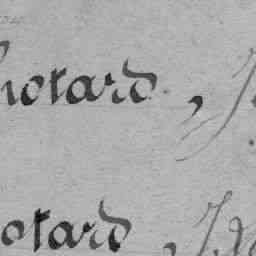 hotard,
otard,